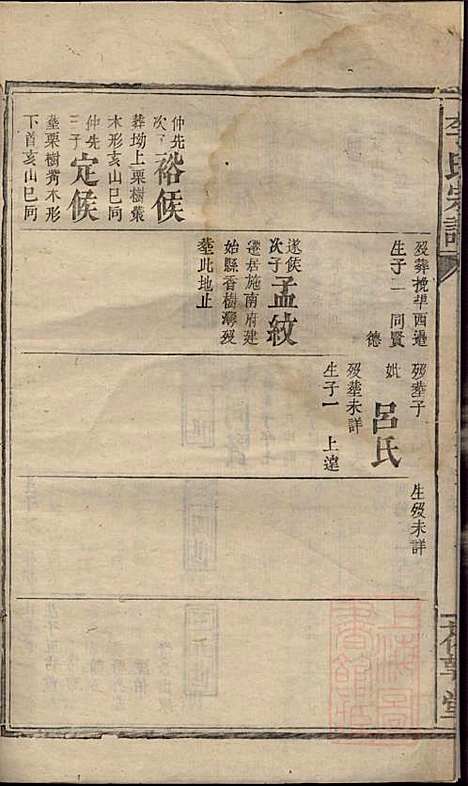 李氏宗譜
歿葬挽𦍒西過
生子一 同賢
德
遂侯
次子
孟紋
遷居施南府建
始縣香樹灣歿
塟此地止
仲先
次子
裕候
葬坳上栗樹叢
木形亥山巳向
仲先
三子
定候
塟栗樹嵜木形
下首亥山巳向
歿塟子
妣 呂氏
歿塟未詳
生子一 上達
生歿未詳